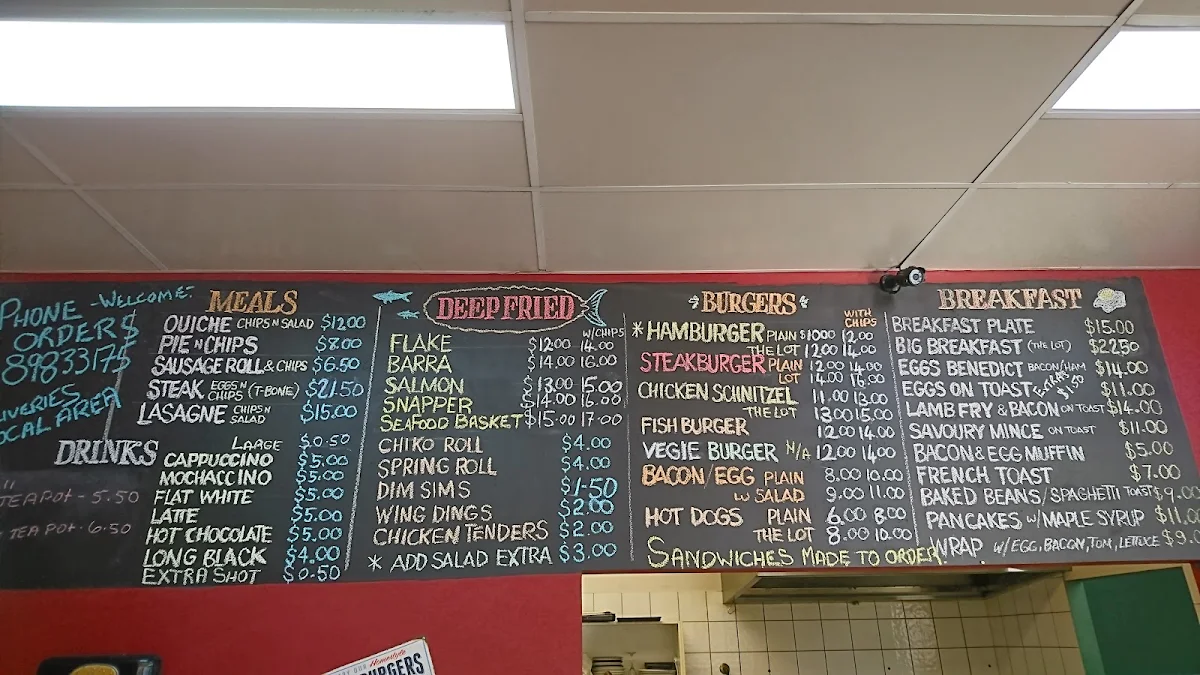 PHONE -WELCOME-
ORDERS
89833175
LIVERIES
OCAL AREA
DRINKS
"
TEAPOT - 5.50
TEA POT - 6.50
MEALS
QUICHE CHIPS N SALAD $12.00
PIE N CHIPS $8.00
SAUSAGE ROLL & CHIPS $6.50
STEAK EGGS N CHIPS (T-BONE) $21.50
LASAGNE CHIPS N SALAD $15.00
LARGE $0.50
CAPPUCCINO $5.00
MOCHACCINO $5.00
FLAT WHITE $5.00
LATTE $5.00
HOT CHOCOLATE $5.00
LONG BLACK $4.00
EXTRA SHOT $0.50
DEEP FRIED
W/CHIPS
FLAKE $12.00 14.00
BARRA $14.00 16.00
SALMON $13.00 15.00
SNAPPER $14.00 16.00
SEAFOOD BASKET $15.00 17.00
CHIKO ROLL $4.00
SPRING ROLL $4.00
DIM SIMS $1.50
WING DINGS $2.00
CHICKEN TENDERS $2.00
* ADD SALAD EXTRA $3.00
BURGERS
WITH CHIPS
* HAMBURGER PLAIN $10.00 12.00
THE LOT 12.00 14.00
STEAKBURGER PLAIN 12.00 14.00
LOT 14.00 16.00
CHICKEN SCHNITZEL 11.00 13.00
THE LOT 13.00 15.00
FISH BURGER 12.00 14.00
VEGIE BURGER N/A 12.00 14.00
BACON/EGG PLAIN 8.00 10.00
W SALAD 9.00 11.00
HOT DOGS PLAIN 6.00 8.00
THE LOT 8.00 10.00
SANDWICHES MADE TO ORDER
BREAKFAST
BREAKFAST PLATE $15.00
BIG BREAKFAST (THE LOT) $22.50
EGGS BENEDICT BACON/HAM $14.00
EGGS ON TOAST EXTRAS $1.50 $11.00
LAMB FRY & BACON ON TOAST $14.00
SAVOURY MINCE ON TOAST $11.00
BACON & EGG MUFFIN $5.00
FRENCH TOAST $7.00
BAKED BEANS/SPAGHETTI TOAST $9.00
PANCAKES W/MAPLE SYRUP $11.0
WRAP W/EGG, BACON, TOM, LETTUCE $9.0
Homestyle
BURGERS